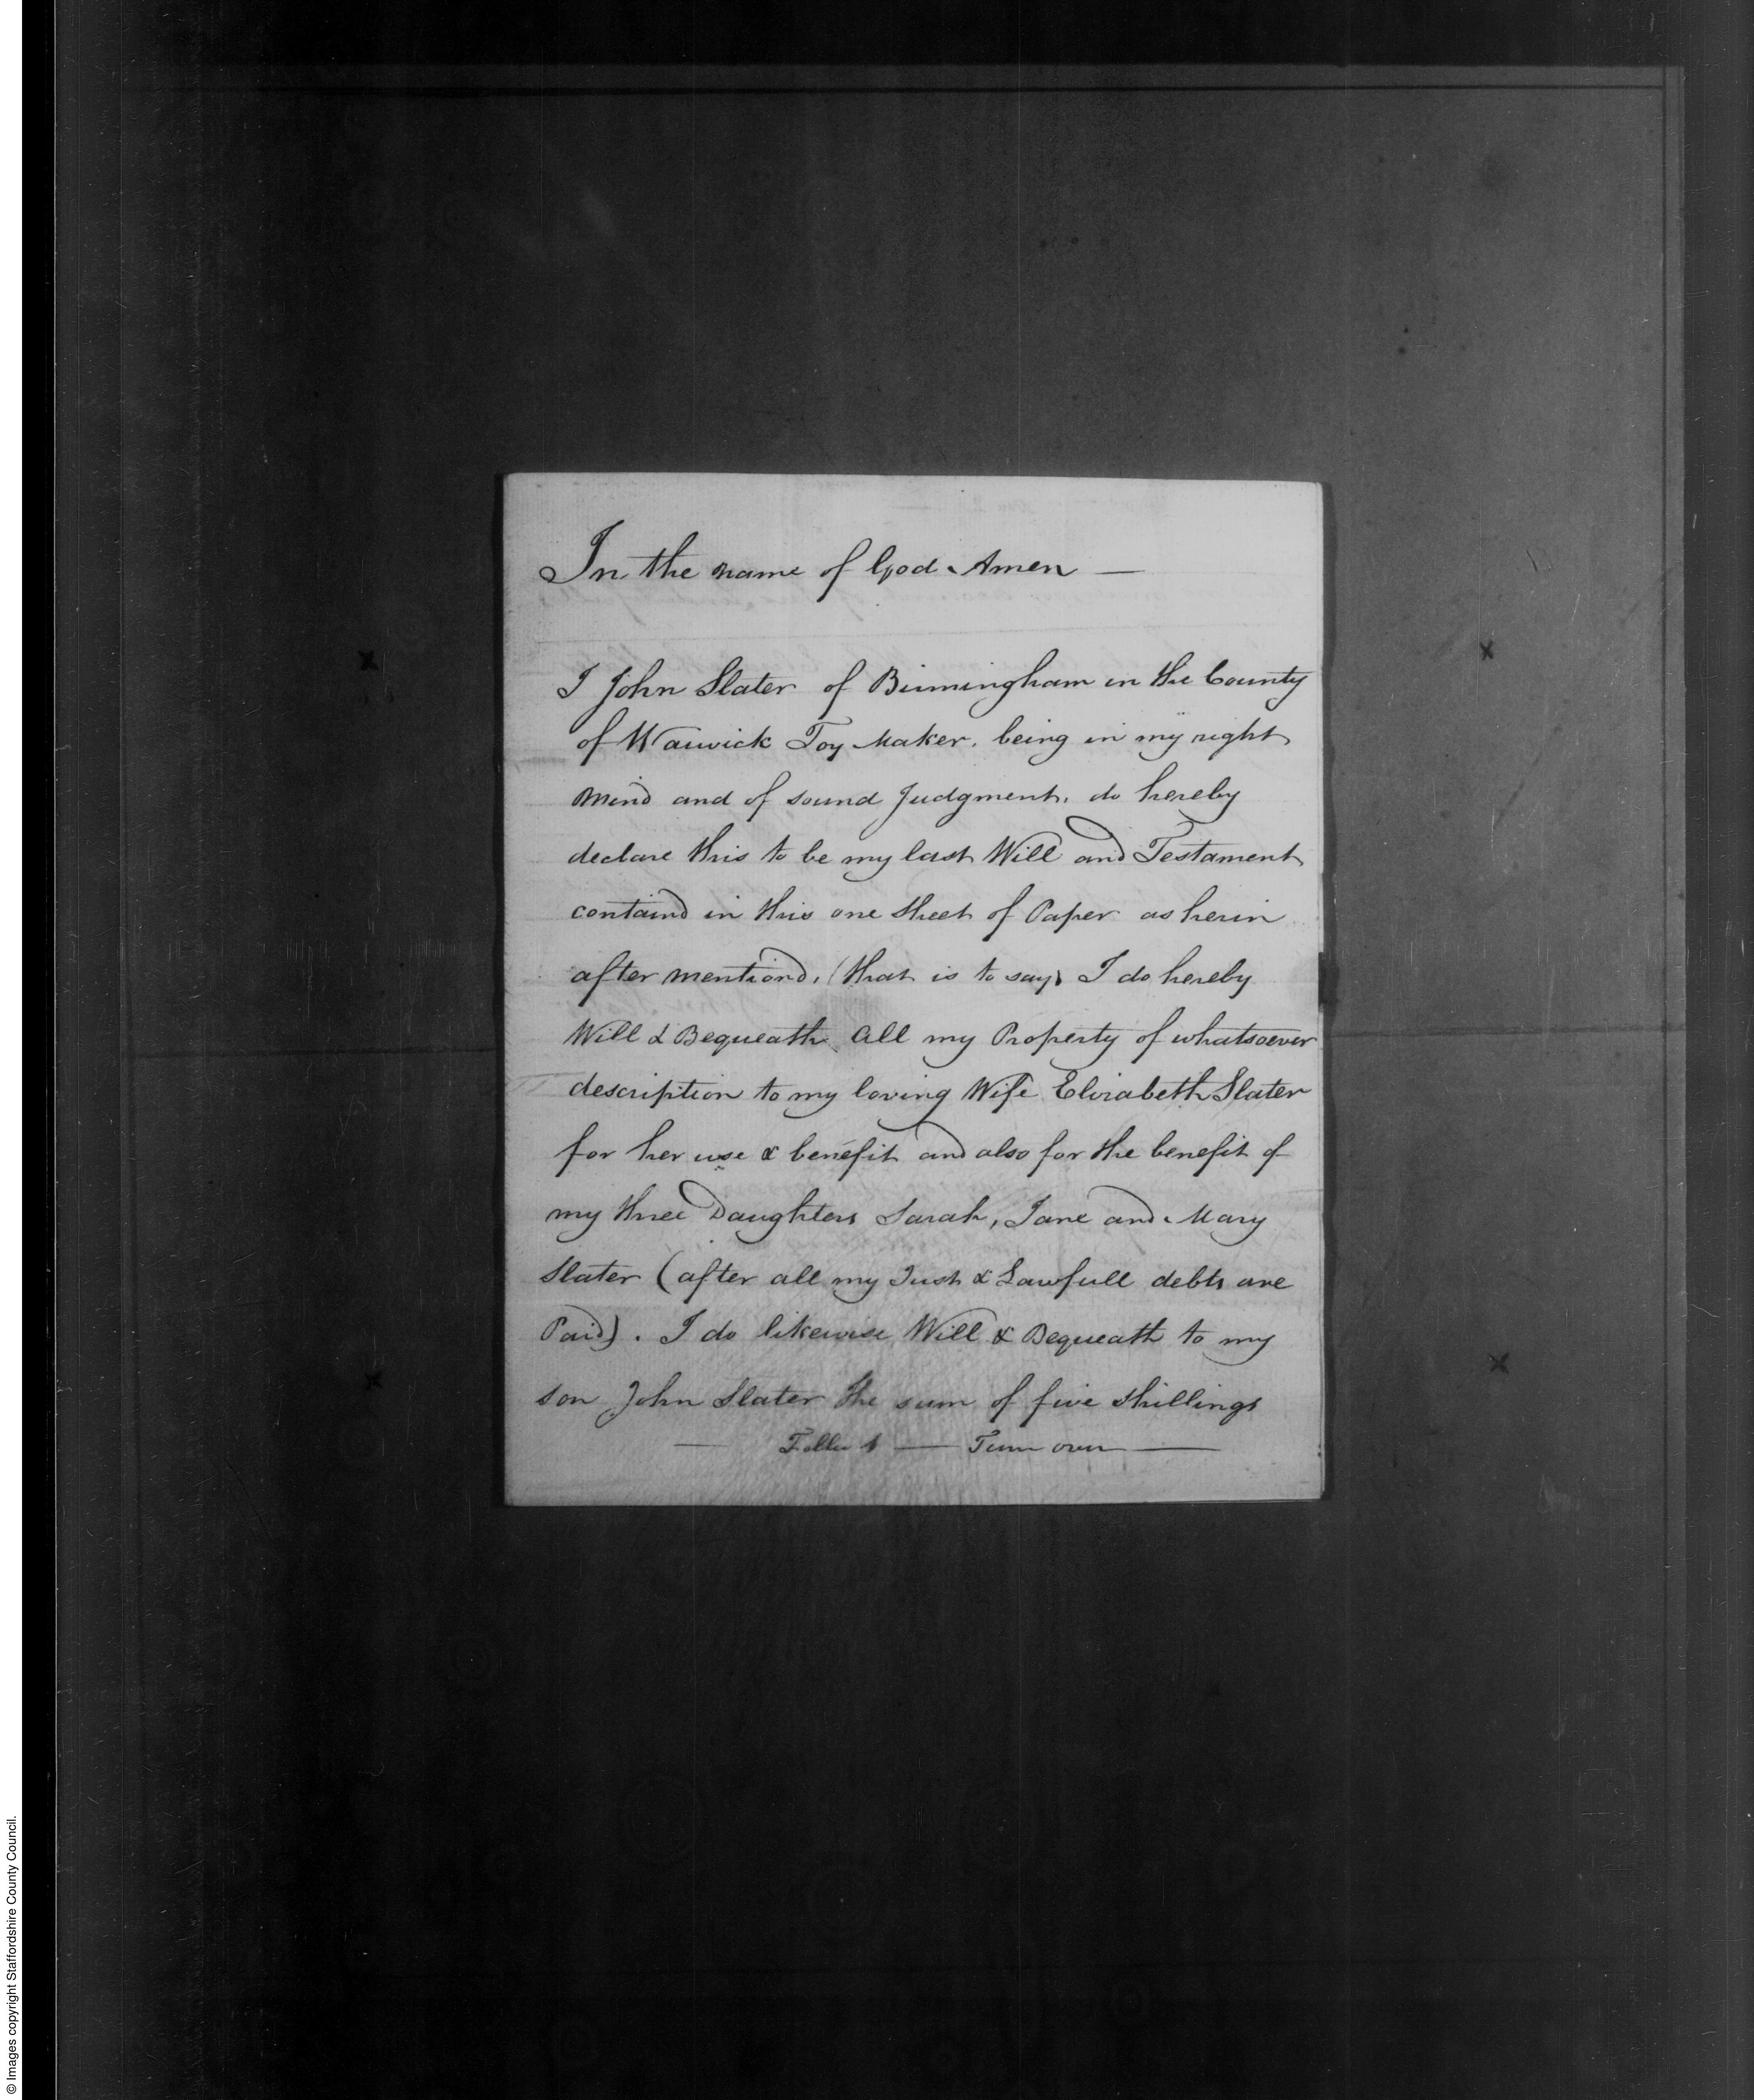 In the name of God Amen —
I John Slater of Birmingham in the County
of Warwick Toy Maker. being in my right
mind and of sound Judgment, do hereby
declare this to be my last Will and Testament
containd in this one sheet of Paper as herin
after mentiond, (that is to say) I do hereby
Will & Bequeath all my Property of whatsoever
description to my loving Wife Elizabeth Slater
for her use & benefit and also for the benefit of
my three Daughters Sarah, Jane and Mary
Slater (after all my Just & Lawfull debts are
Paid). I do likewise Will & Bequeath to my
son John Slater the sum of five shillings
— — Turn over —
© Images copyright Staffordshire County Council.